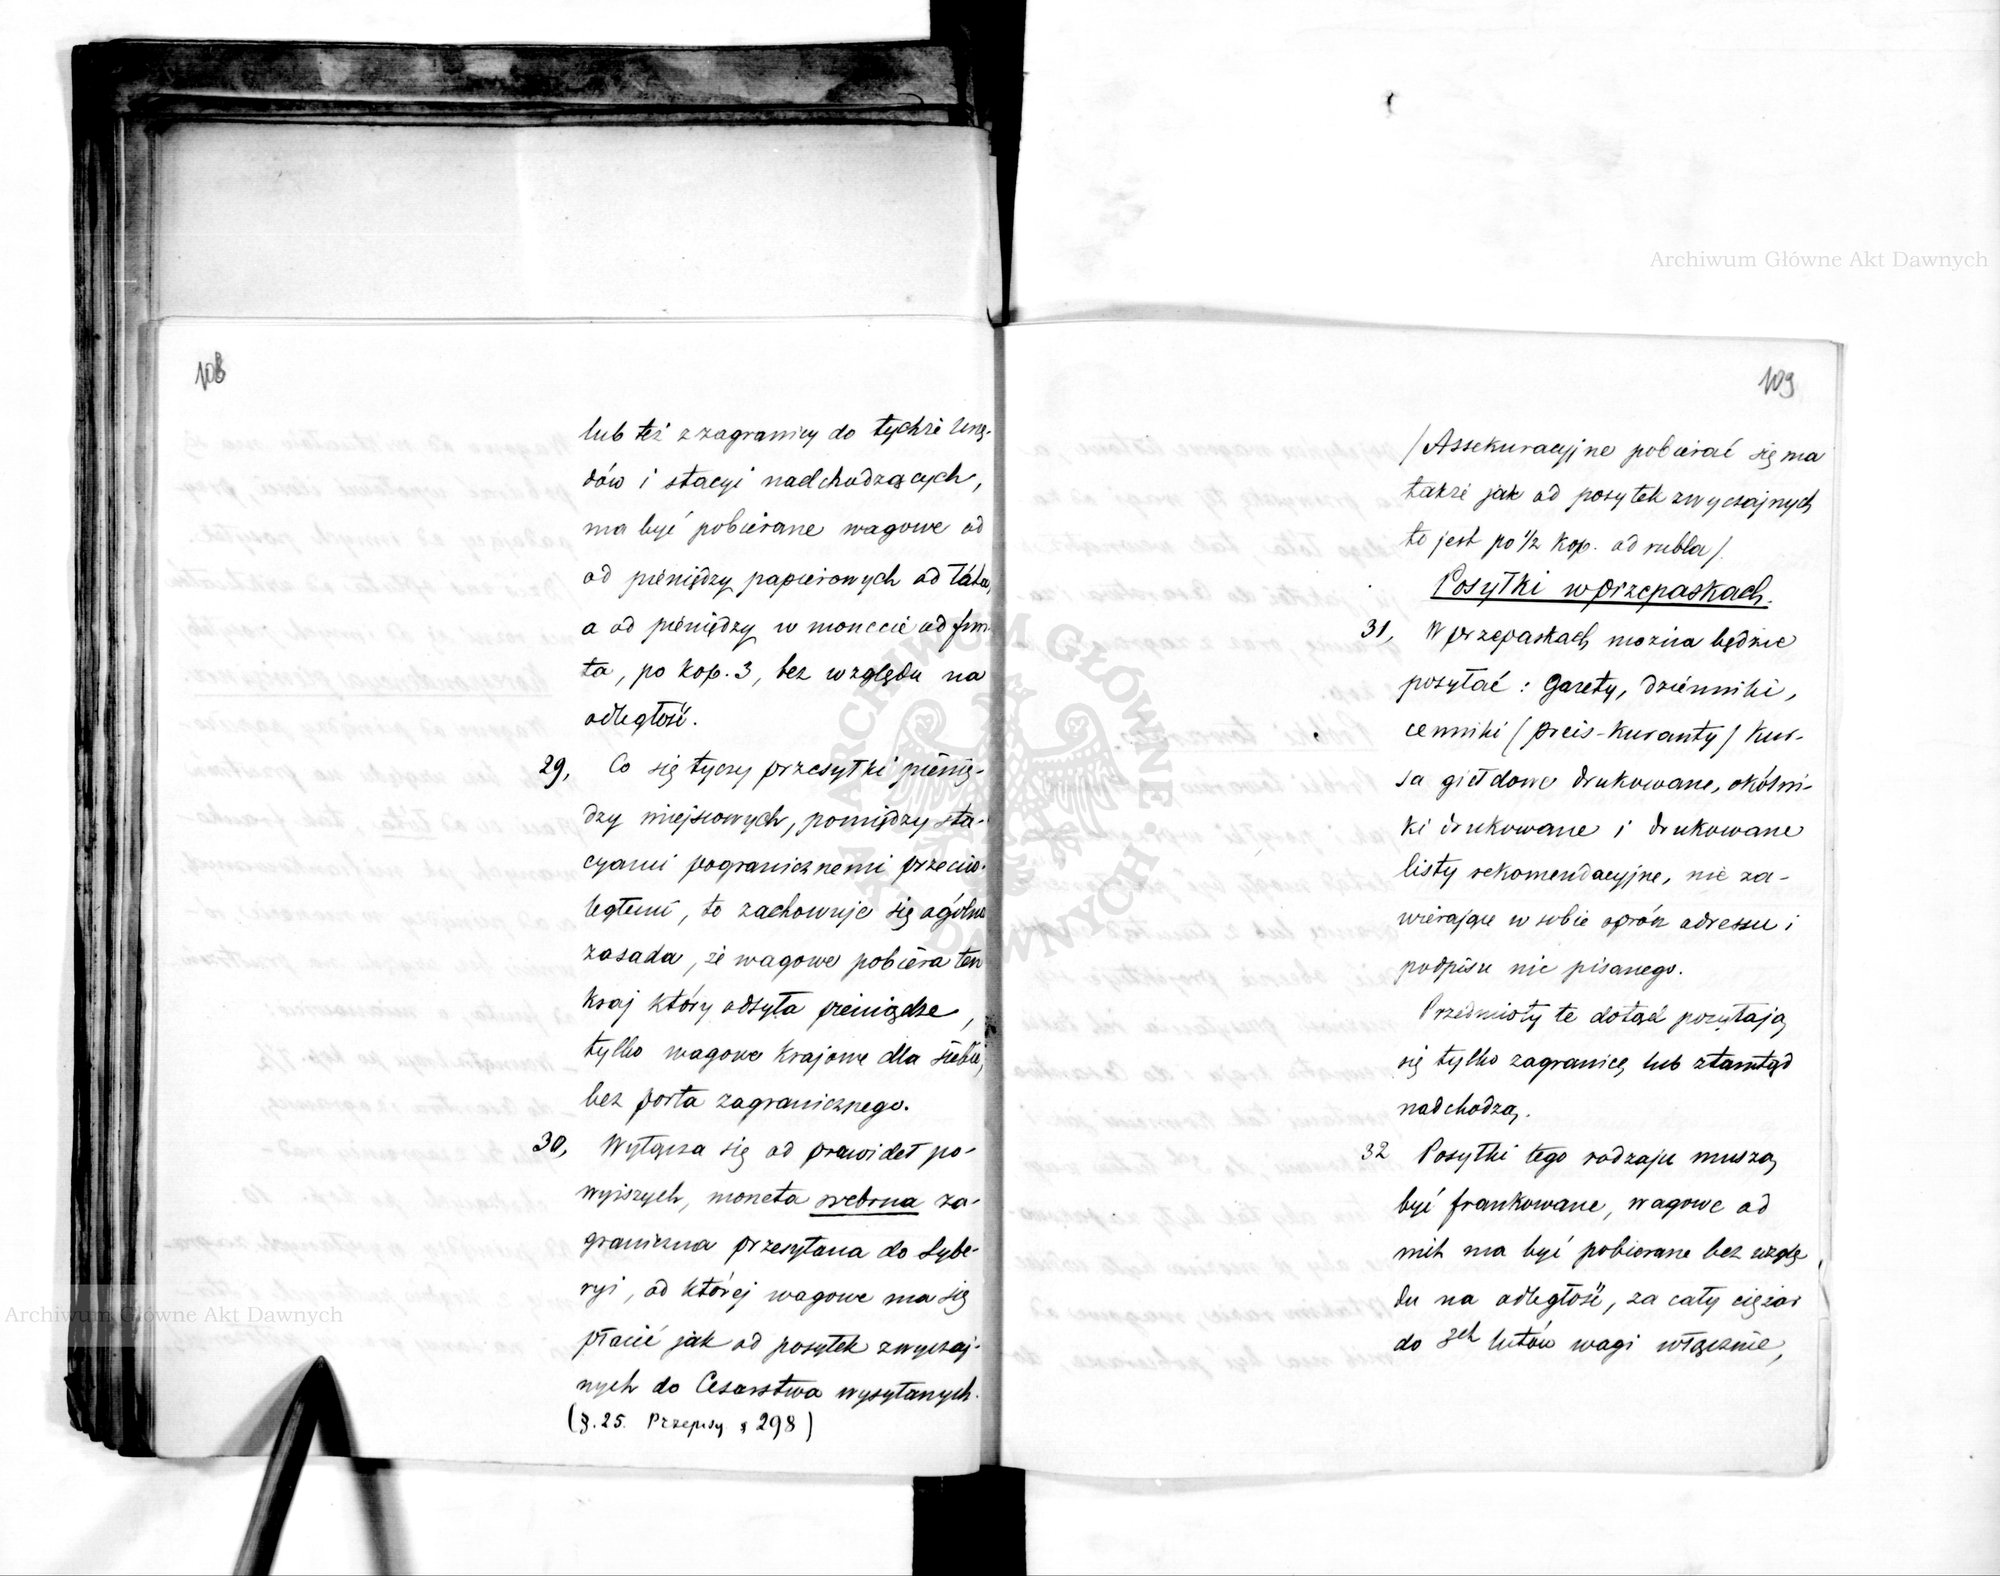 108
lub też z zagranicy do tychże Urzę-
dów i stacyi nadchodzących,
ma być pobierane wagowe od
od pieniędzy papierowych od łóta,
a od pieniędzy w monecie od fun-
ta, po kop. 3, bez względu na
odległość.
29, Co się tyczy przesyłki pienię-
dzy miejscowych, pomiędzy sta-
cyami pogranicznemi przeciw-
ległemi, to zachowuje się ogólna
zasada, że wagowe pobiera ten
kraj który odsyła pieniądze,
tylko wagowe krajowe dla siebie,
bez porta zagranicznego.
30, Wyłącza się od prawideł po-
wyższych, moneta srebrna za-
graniczna przesyłana do Sybe-
ryi, od której wagowe ma się
płacić jak od posyłek zwyczaj-
nych do Cesarstwa wysyłanych.
(§. 25. Przepisy § 298)
109
/Assekuracyjne pobierać się ma
także jak od posyłek zwyczajnych
to jest po ½ kop. od rubla/.
Posyłki w przepaskach.
31, W przepaskach można będzie
posyłać: Gazety, dzienniki,
cenniki /preis-kuranty/ kur-
sa giełdowe drukowane, okólni-
ki drukowane i drukowane
listy rekomendacyjne, nie za-
wierające w sobie oprócz adressu i
podpisu nic pisanego.
Przedmioty te dotąd posyłają
się tylko zagranicę lub ztamtąd
nadchodzą.
32 Posyłki tego rodzaju muszą
być frankowane, wagowe od
nich ma być pobierane bez wzglę
du na odległość, za cały ciężar
do 3ch łutów wagi włącznie,
Archiwum Główne Akt Dawnych
Archiwum Główne Akt Dawnych
ARCHIWUM GŁÓWNE AKT DAWNYCH